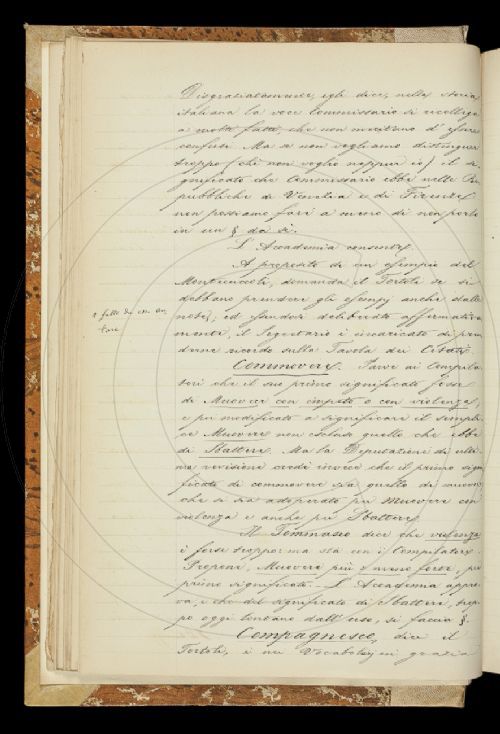 Disgraziatamente, egli dice, nella storia
italiana la voce Commissario si ricollega
a molti fatti, che non meritano d'essere
confusi. Ma se non vogliamo distinguer
troppo (chè non voglio neppur io) il si-
gnificato che Commissario ebbe nelle Re-
pubbliche di Venezia e di Firenze,
non possiamo fare a meno di non porlo
in un § da sè.
L'Accademia consente.
A proposito di un esempio del
Montecuccoli, domanda il Tortoli se si
debbano prendere gli esempj anche dalle
note; ed essendosi deliberato affermativa-
mente, il Segretario è incaricato di pren-
derne ricordo sulla Tavola dei Citati.
Commovere. Parve ai Compila-
tori che il suo primo significato fosse
di Muovere con impeto o con violenza,
e poi modificato a significare il sempli-
ce Muovere non escluso quello che ebbe
di Sbattere. Ma la Deputazione di ulti-
ma revisione credè invece che il primo signi-
ficato di commovere sia quello di muovere
che si sia adoperato per Muovere con
violenza e anche per Sbattere.
Il Tommaseo dice che violenza
è forse troppo: ma sta con i Compilatori.
Propone, Muovere più o meno forte, per
primo significato. - L'Accademia appro-
va, e che del significato di Sbattere, trop-
po oggi lontano dall'uso, si faccia §.
Compagnesco, dice il
Tortoli, è un Vocabolo, in grazia